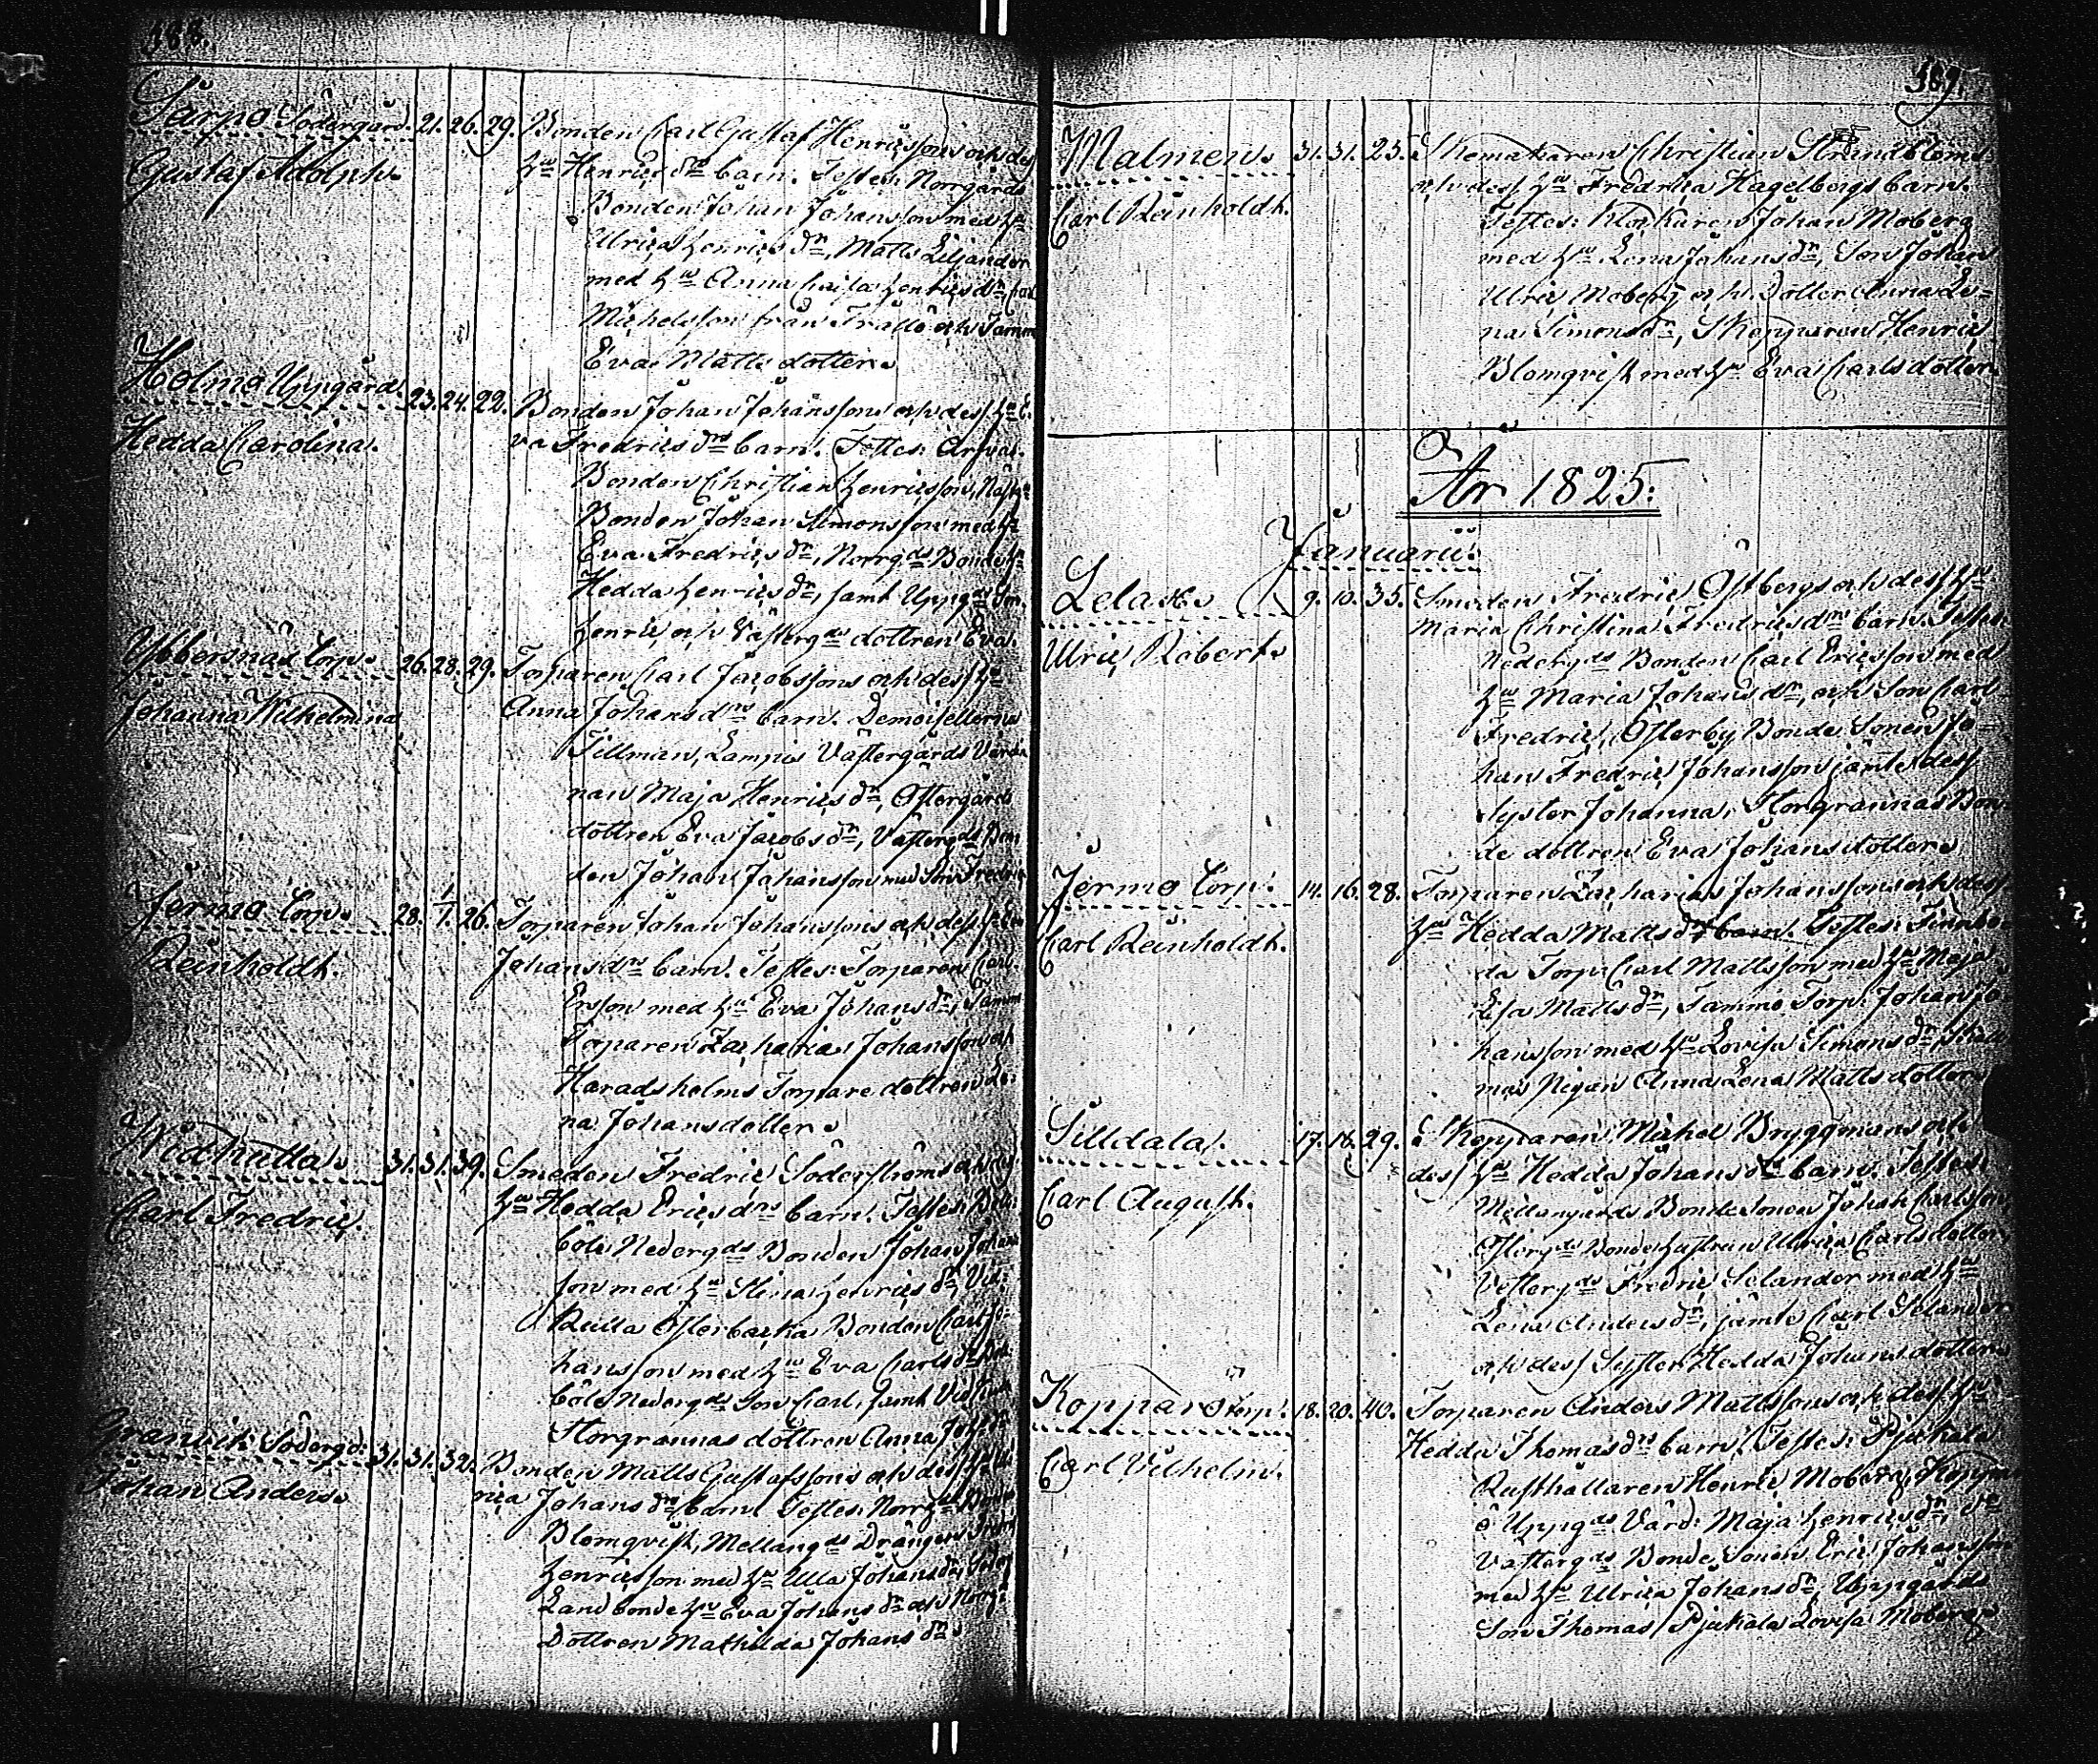 388.
Särpo Södergård. 21. 26. 29. Bonden Carl Gustaf Henricssons och dess
Gustaf Adolph. hu Henricsdrs barn. Testes: Norrgårds
Bonden Johan Johansson med hu
Ulrica Henricsdr, Matts Liljander
med hu Anna Caisa Henricsdr, Carl
Michelsson från Trällö och
Eva Mattsdotter.
Holmo Uppgård. 23. 24. 22. Bonden Johan Johanssons och dess hu E-
Hedda Carolina. va Fredricsdrs barn. Testes: Arfvas
Bonden Christian Henricsson,
Bonden Johan Simonsson med hu
Eva Fredricsdr, Norrgds Bonde hu
Hedda Henricsdr, samt Uppgds Son
Henric och Västergds dottren Eva.
Ybbersnäs Torp. 26. 28. 29. Torparen Carl Jacobssons och dess hu
Johanna Wilhelmina Anna Johansdrs barn. Demoisellerna
Tillman, Lampis Västergårds Värdin
nan Maja Henricsdr, Östergårds
dottren Eva Jacobsdr, Västergds Bon
den Johan Johansson med Son Fredric
Jermo Torp. 28. 1/1. 26. Torparen Johan Johanssons och dess
Reinholdt. Johansdrs barn. Testes: Torparen Carl
Ersson med hu Eva Johansdr,
Torparen Zacharias Johansson och
Haradsholms Torpare dottren Le-
na Johansdotter.
Widkulla. 31. 31. 39. Smeden Fredric Söderströms och dess
Carl Fredric. hu Hedda Ericsdrs barn. Testes:
böle Nedergds Bonden Johan Johans
son med hu Stina Henricsdr, Vid-
kulla Österbacka Bonden Carl Jo-
hansson med hu Eva Carlsdr,
böle Nedergds Son Carl, samt Vidkulla
Storgrannas dottren Anna
Granvik Södergd. 31. 31. 32. Bonden Matts Gustafssons och dess hu Ul-
Johan Anders. rica Johansdrs barn. Testes:
Blomqvist, Mellangds Drängen
Henricsson med hu Ulla Johansdr,
Landbonde hu Eva Johansdr och
Dottren Mathilda Johansdr.
389.
Malmen. 31. 31. 25. Skomakaren Christian Strandbloms
Carl Reinholdt. och dess hu Fredrica Hagelbergs barn.
Testes: Klockaren Johan Moberg
med hu Lena Johansdr, Son Johan
Ulric Moberg och Dotter Anna Le-
na Simonsdr, Skepparen Henric
Blomqvist med hu Eva Carlsdotter.
År 1825:
Januarii.
Lelax. 9. 10. 35. Smeden Fredric Östbergs och dess hu
Ulric Robert. Maria Christina Fredricsdrs barn. Testes
Nedergds Bonden Carl Ericsson med
hu Maria Johansdr, och Son Carl
Fredric, Österby Bonde Sonen Jo-
han Fredric Johansson jämte dess
Syster Johanna, Storgrannas Bon
de dottren Eva Johansdotter.
Jermo Torp. 14. 16. 28. Torparen Zacharias Johanssons och dess
Carl Reinholdt. hu Hedda Mattsdrs barn. Testes: Finnbo-
da Torp. Carl Mattsson med hu Maja
Lisa Mattsdr, Tammo Torp. Johan Jo-
hansson med hu Lovisa Simonsdr,
mas Pigan Anna Lena Mattsdotter
Silldala. 17. 18. 29. Skepparen Michel Bryggmans och
Carl August. dess hu Hedda Johansdrs barn. Testes:
Mellangårds Bonde Sonen Johan Carlsson,
Östergds Bonde hustrun Ulrica Carlsdotter,
Västergds Fredric Selander med hu
Lena Andersdr, jämte Carl Selander
och dess Syster Hedda Johansdotter.
Kopparö Torp. 18. 20. 40. Torparen Anders Mattssons och dess hu
Carl Vilhelm. Hedda Thomasdrs barn. Testes: Pjukala
Rusthållaren Henric Moberg, Koppar
ö Uppgds Värd: Maja Henricsdr,
Västergds Bonde Sonen Eric Johansson
med hu Ulrica Johansdr, Uppgårds
Son Thomas, Pjukala Lovisa Moberg.